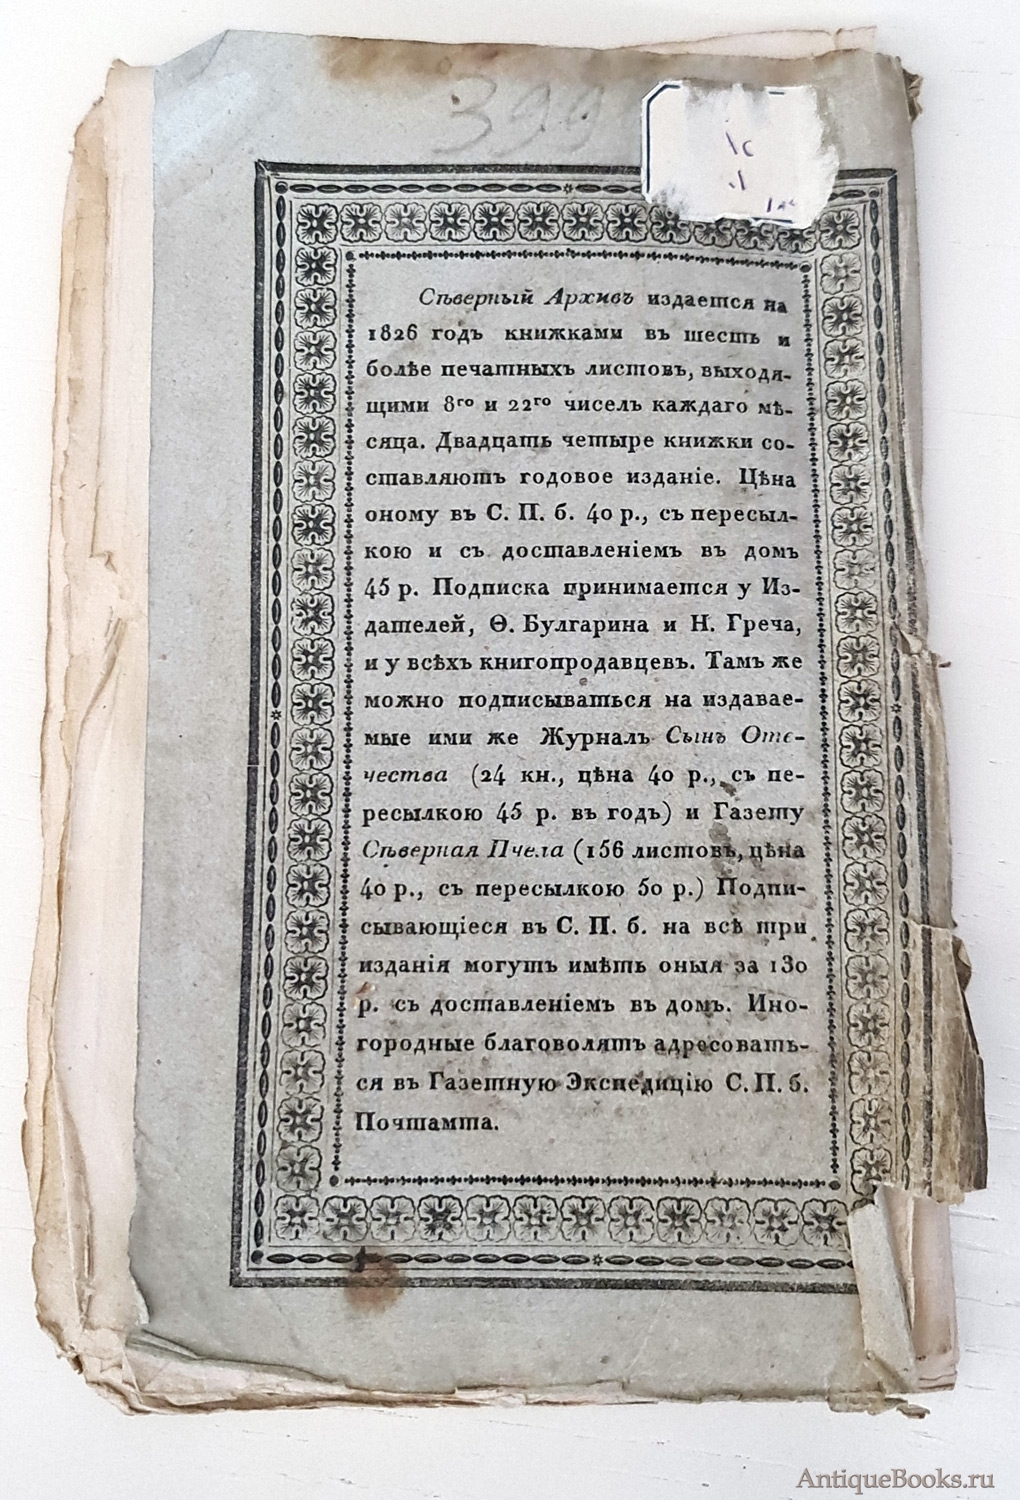 399
Сѣверный Архивъ издается на
1826 годъ книжками въ шесть и
болѣе печатныхъ листовъ, выходя-
щими 8го и 22го чиселъ каждаго мѣ-
сяца. Двадцать четыре книжки со-
ставляютъ годовое изданіе. Цѣна
оному въ С. П. б. 40 р., съ пересыл-
кою и съ доставленіемъ въ домъ
45 р. Подписка принимается у Из-
дателей, Ѳ. Булгарина и Н. Греча,
и у всѣхъ книгопродавцевъ. Тамъ же
можно подписываться на издавае-
мые ими же Журналъ Сынъ Оте-
чества (24 кн., цѣна 40 р., съ пе-
ресылкою 45 р. въ годъ) и Газету
Сѣверная Пчела (156 листовъ, цѣна
40 р., съ пересылкою 50 р.) Подпи-
сывающіеся въ С. П. б. на всѣ три
изданія могутъ имѣть оныя за 130
р. съ доставленіемъ въ домъ. Ино-
городные благоволятъ адресовать-
ся въ Газетную Экспедицію С. П. б.
Почтамта.
AntiqueBooks.ru